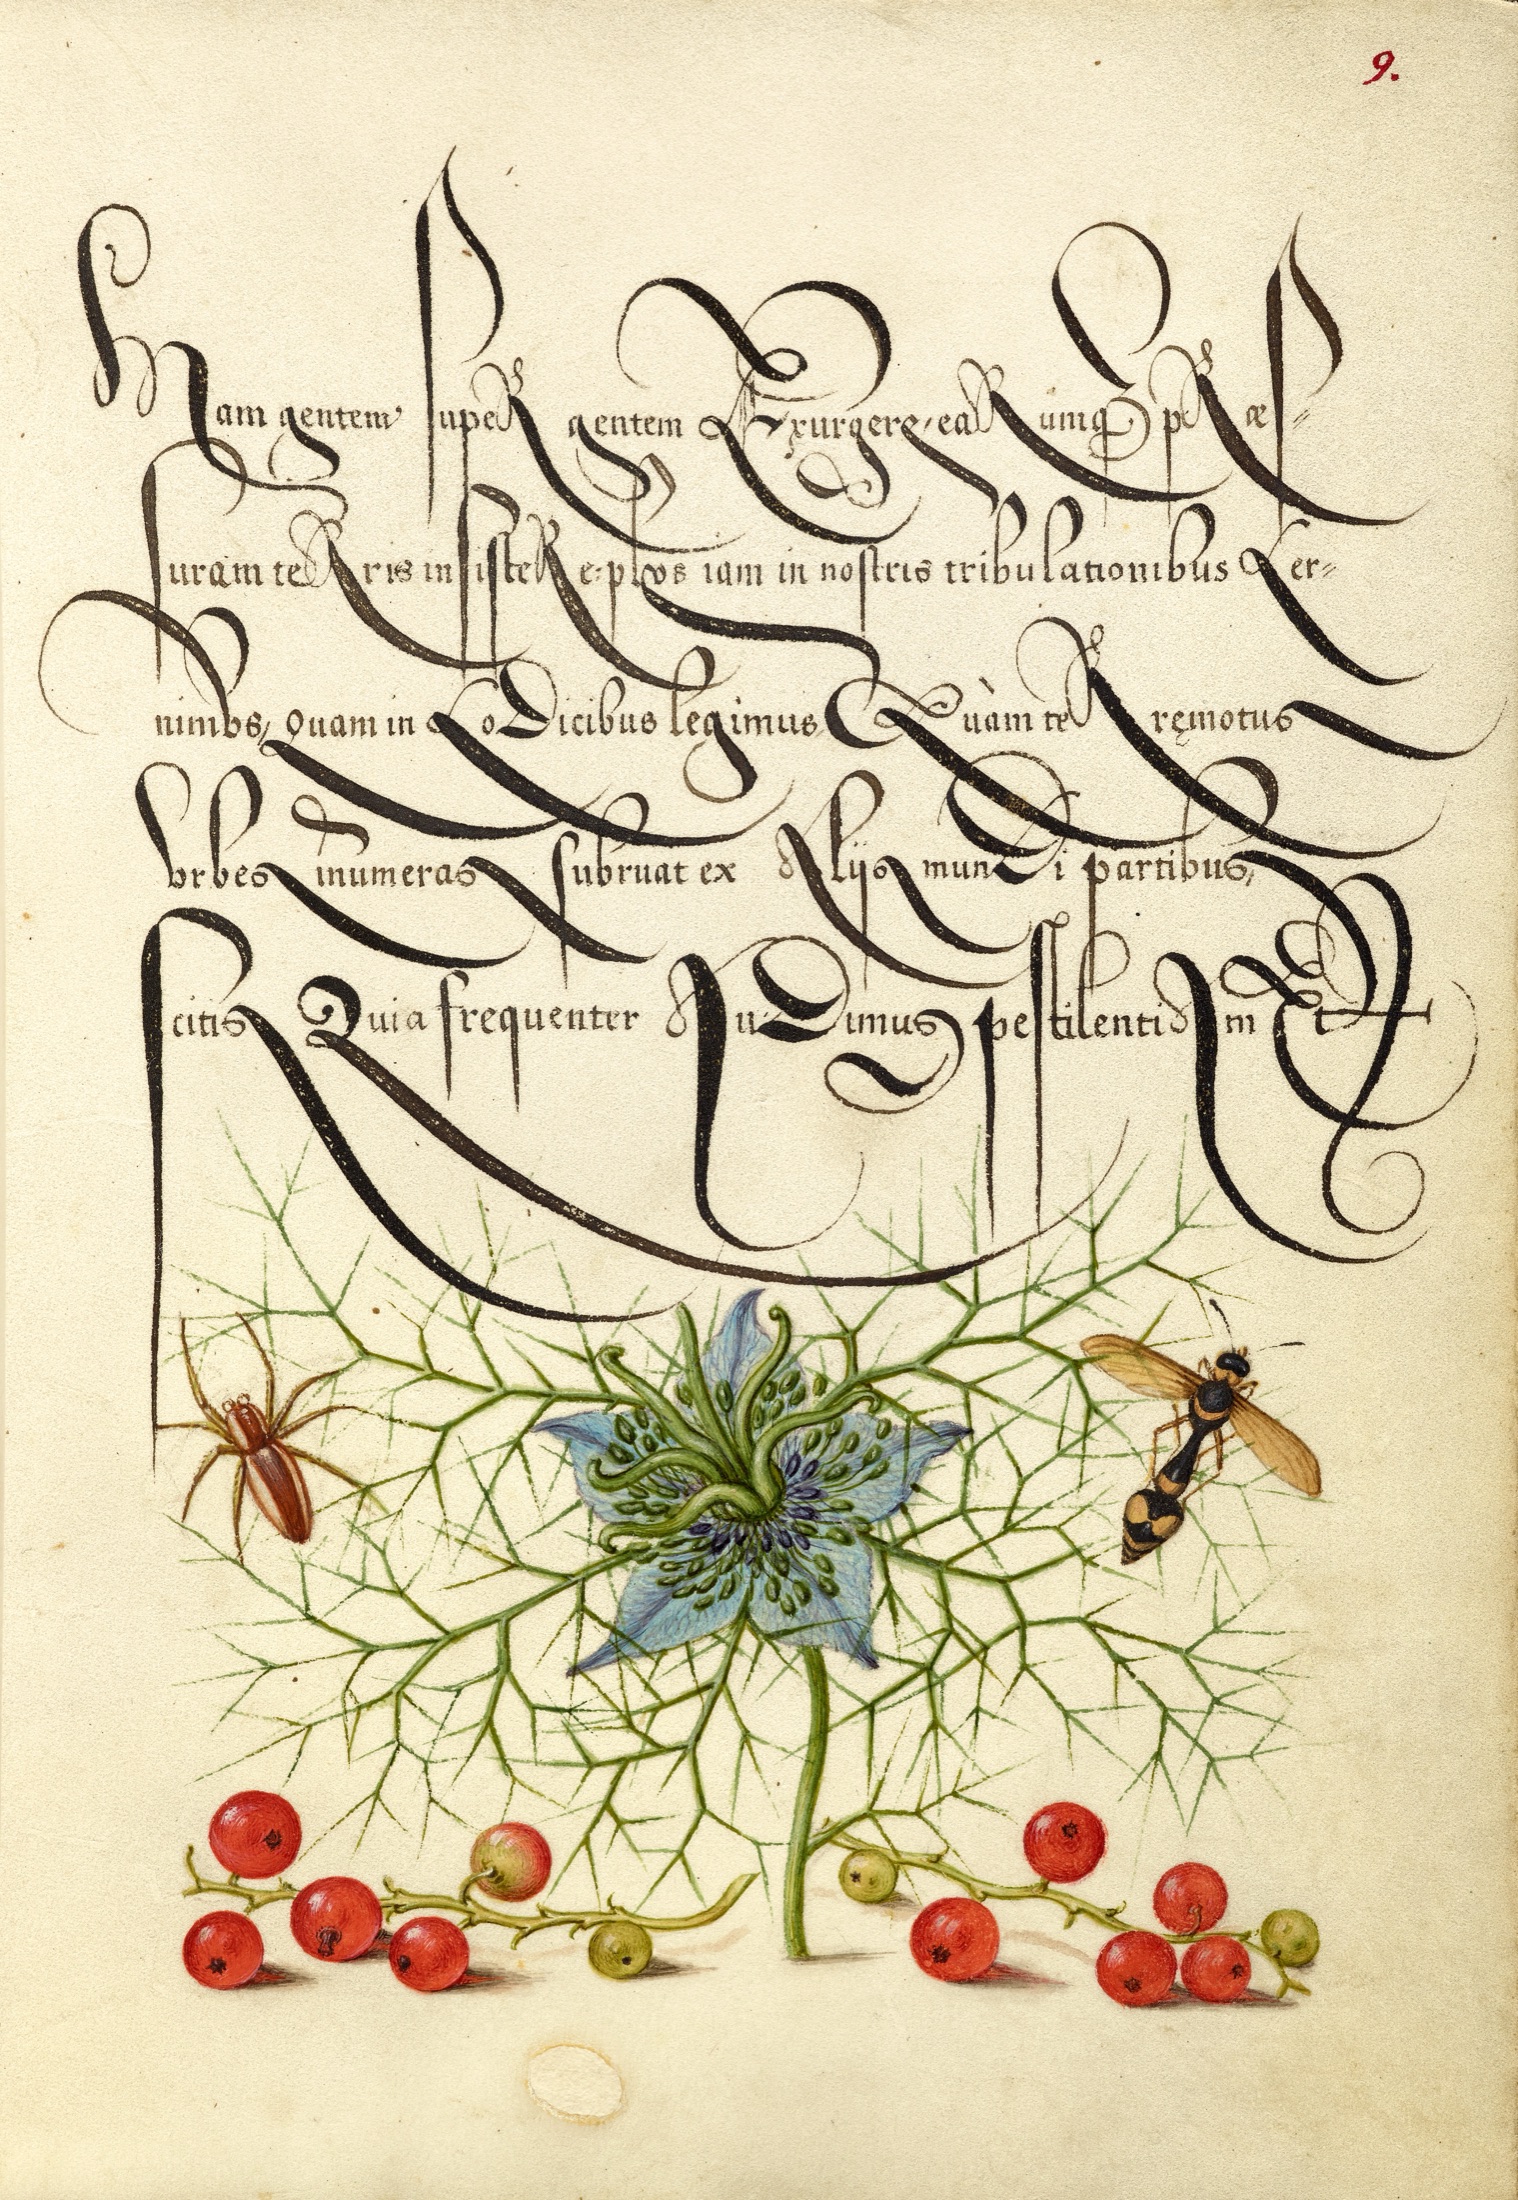 9.
Nam gentem super gentem Exurgere, earumq; præs=
suram terris insistere: plvs iam in nostris tribulationibus Cer=
nimvs, quam in CoDicibus legimus Quàm terr remotus
Vrbes inumeras subruat ex Aliis munDi partibus,
scitis Quia frequenter AuDimus pestilentiAm Et